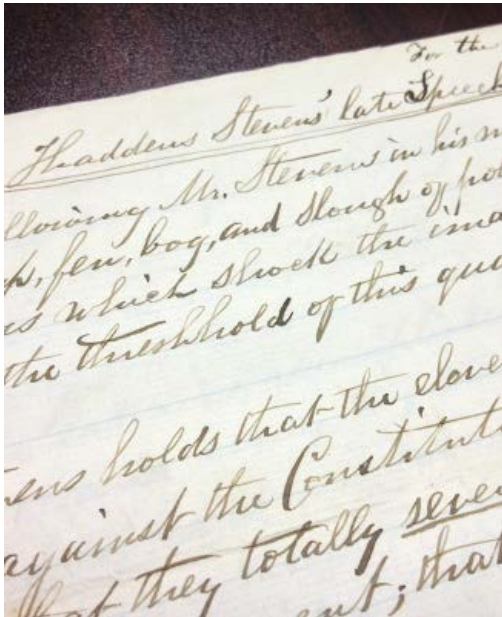 For the
Thaddeus Stevens' late Speech
llowing Mr. Stevens in his
p, fen, bog, and slough of po
us which shock the ima
the threshhold of this que
ens holds that the eleve
against the Constituti
hat they totally seve
ent; that